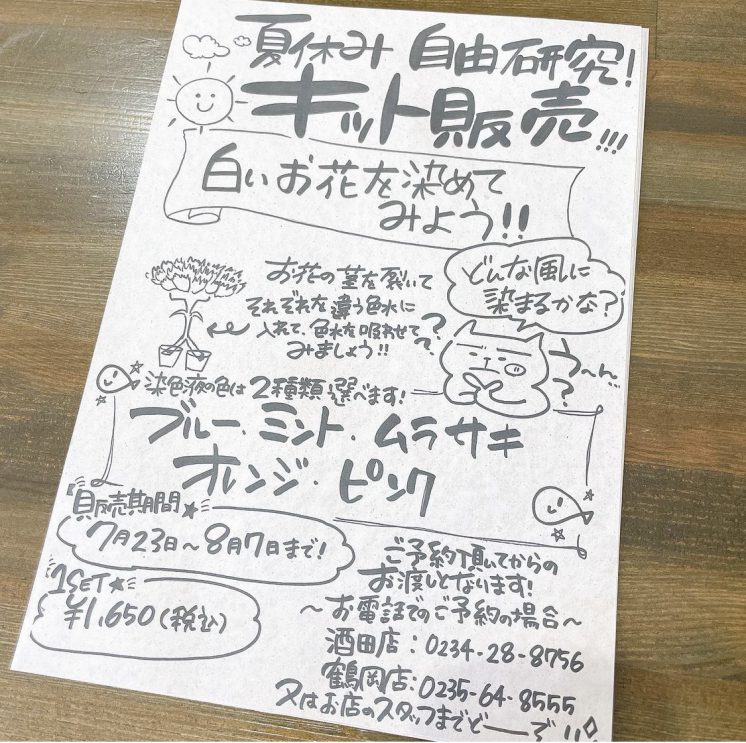 夏休み 自由研究!
キット販売!!!
白いお花を染めて
みよう!!
お花の茎を裂いて
それぞれを違う色水に
入れて、色水を吸わせて
みましょう!!
どんな風に
染まるかな?
? ?
う〜ん...
?
染色液の色は2種類選べます!
ブルー・ミント・ムラサキ
オレンジ・ピンク
販売期間
7月23日〜8月7日まで!
1SET
¥1,650(税込)
ご予約頂いてからの
お渡しとなります!
〜お電話でのご予約の場合〜
酒田店:0234-28-8756
鶴岡店:0235-64-8555
又はお店のスタッフまでどーぞ!!